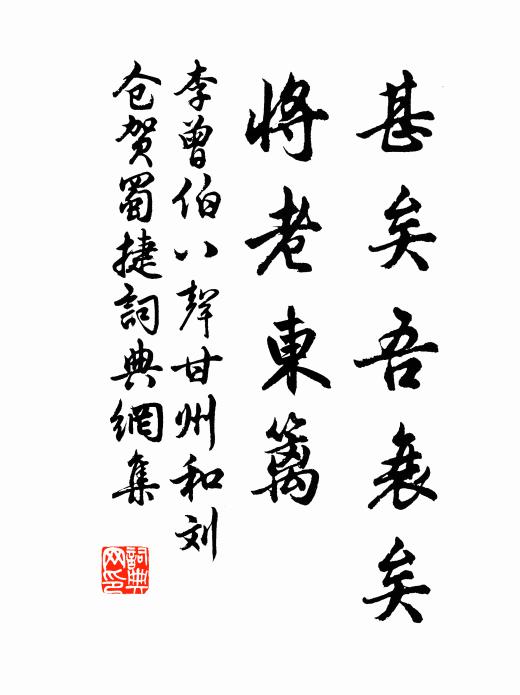 甚矣吾衰矣
將老東籬
李曾伯八聲甘州和刘
仓贺蜀捷詞典網集
詞典網印